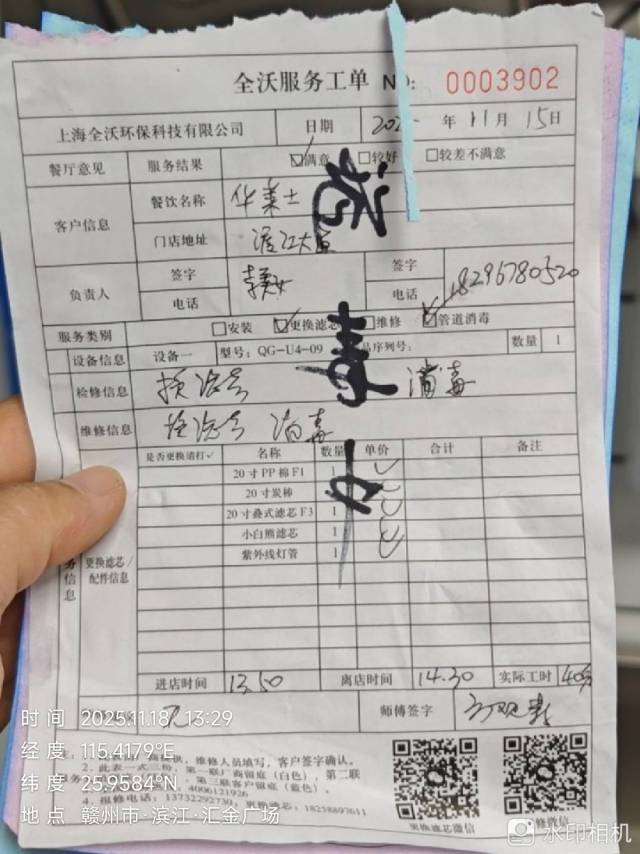 全沃服务工单 No: 0003902
上海全沃环保科技有限公司 日期 202 年 11月 15日
餐厅意见 服务结果 ☑满意 □较好 □较差不满意
客户信息 餐饮名称 华莱士
门店地址 滨江大道
负责人 签字 签字
电话 电话 18296780520
服务类别 □安装 ☑更换滤芯 □维修 ☑管道消毒
设备信息 设备一 型号: QG-U4-09 品序列号: 数量 1
检修信息 换滤芯 消毒
维修信息 换滤芯 消毒
是否更换请打✓ 名称 数量 单价 合计 备注
20寸PP棉F1 1 ✓
20寸炭棒 1 ✓
20寸叠式滤芯F3 1 ✓
小白熊滤芯 1 ✓
紫外线灯管 1 ✓
务信息
更换滤芯/配件信息
进店时间 13.50 离店时间 14.30 实际工时 40分
师傅签字
维修人员填写,客户签字确认。
2、此表一式三份,第一联厂商留底(白色),第二联
第三联客户留底(蓝色)。
4006121926
4、报修电话:13732292730,更换滤芯:18258897611
更换滤芯微信
报修微信
华莱士
时间 2025.11.18 13:29
经度 115.4179°E
纬度 25.9584°N
地点 赣州市·滨江·汇金广场
水印相机